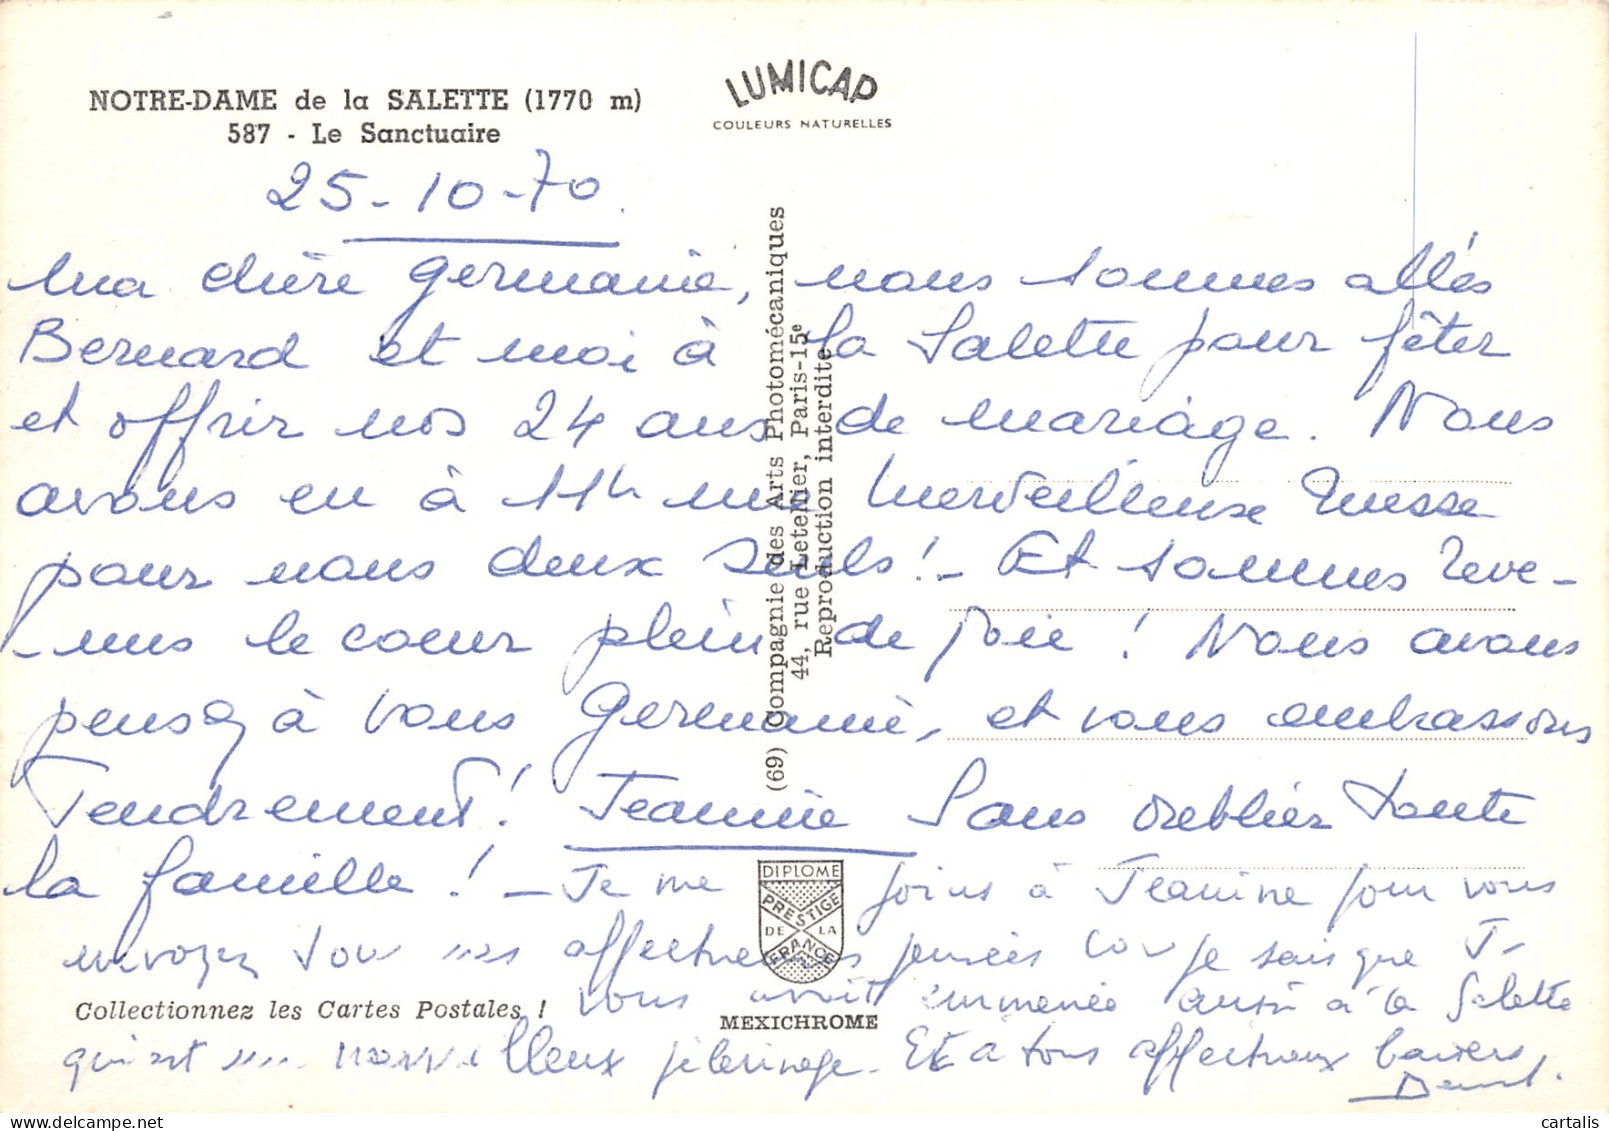 NOTRE-DAME de la SALETTE (1770 m)
587 - Le Sanctuaire
LUMICAP
COULEURS NATURELLES
25-10-70.
Ma chère Germaine, nous sommes allés
Bernard et moi à la Salette pour fêter
et offrir nos 24 ans de mariage. Nous
avons eu à 11h une merveilleuse messe
pour nous deux seuls! - Et sommes reve-
-nus le coeur plein de joie! Nous avons
pensé à vous Germaine, et vous embrassons
Tendrement! Jeannine Sans oublier toute
la famille! - Je me joins à Jeannine pour vous
envoyer mes affectueuses pensées car je sais que J-
vous avait emmenée aussi à la Salette
qui est merveilleux pèlerinage. Et à tous affectueux baisers
Bernard.
(69) Compagnie des Arts Photomécaniques
44, rue Letellier, Paris-15e
Reproduction interdite
DIPLOME
PRESTIGE
DE LA
FRANCE
Collectionnez les Cartes Postales !
MEXICHROME
cartalis